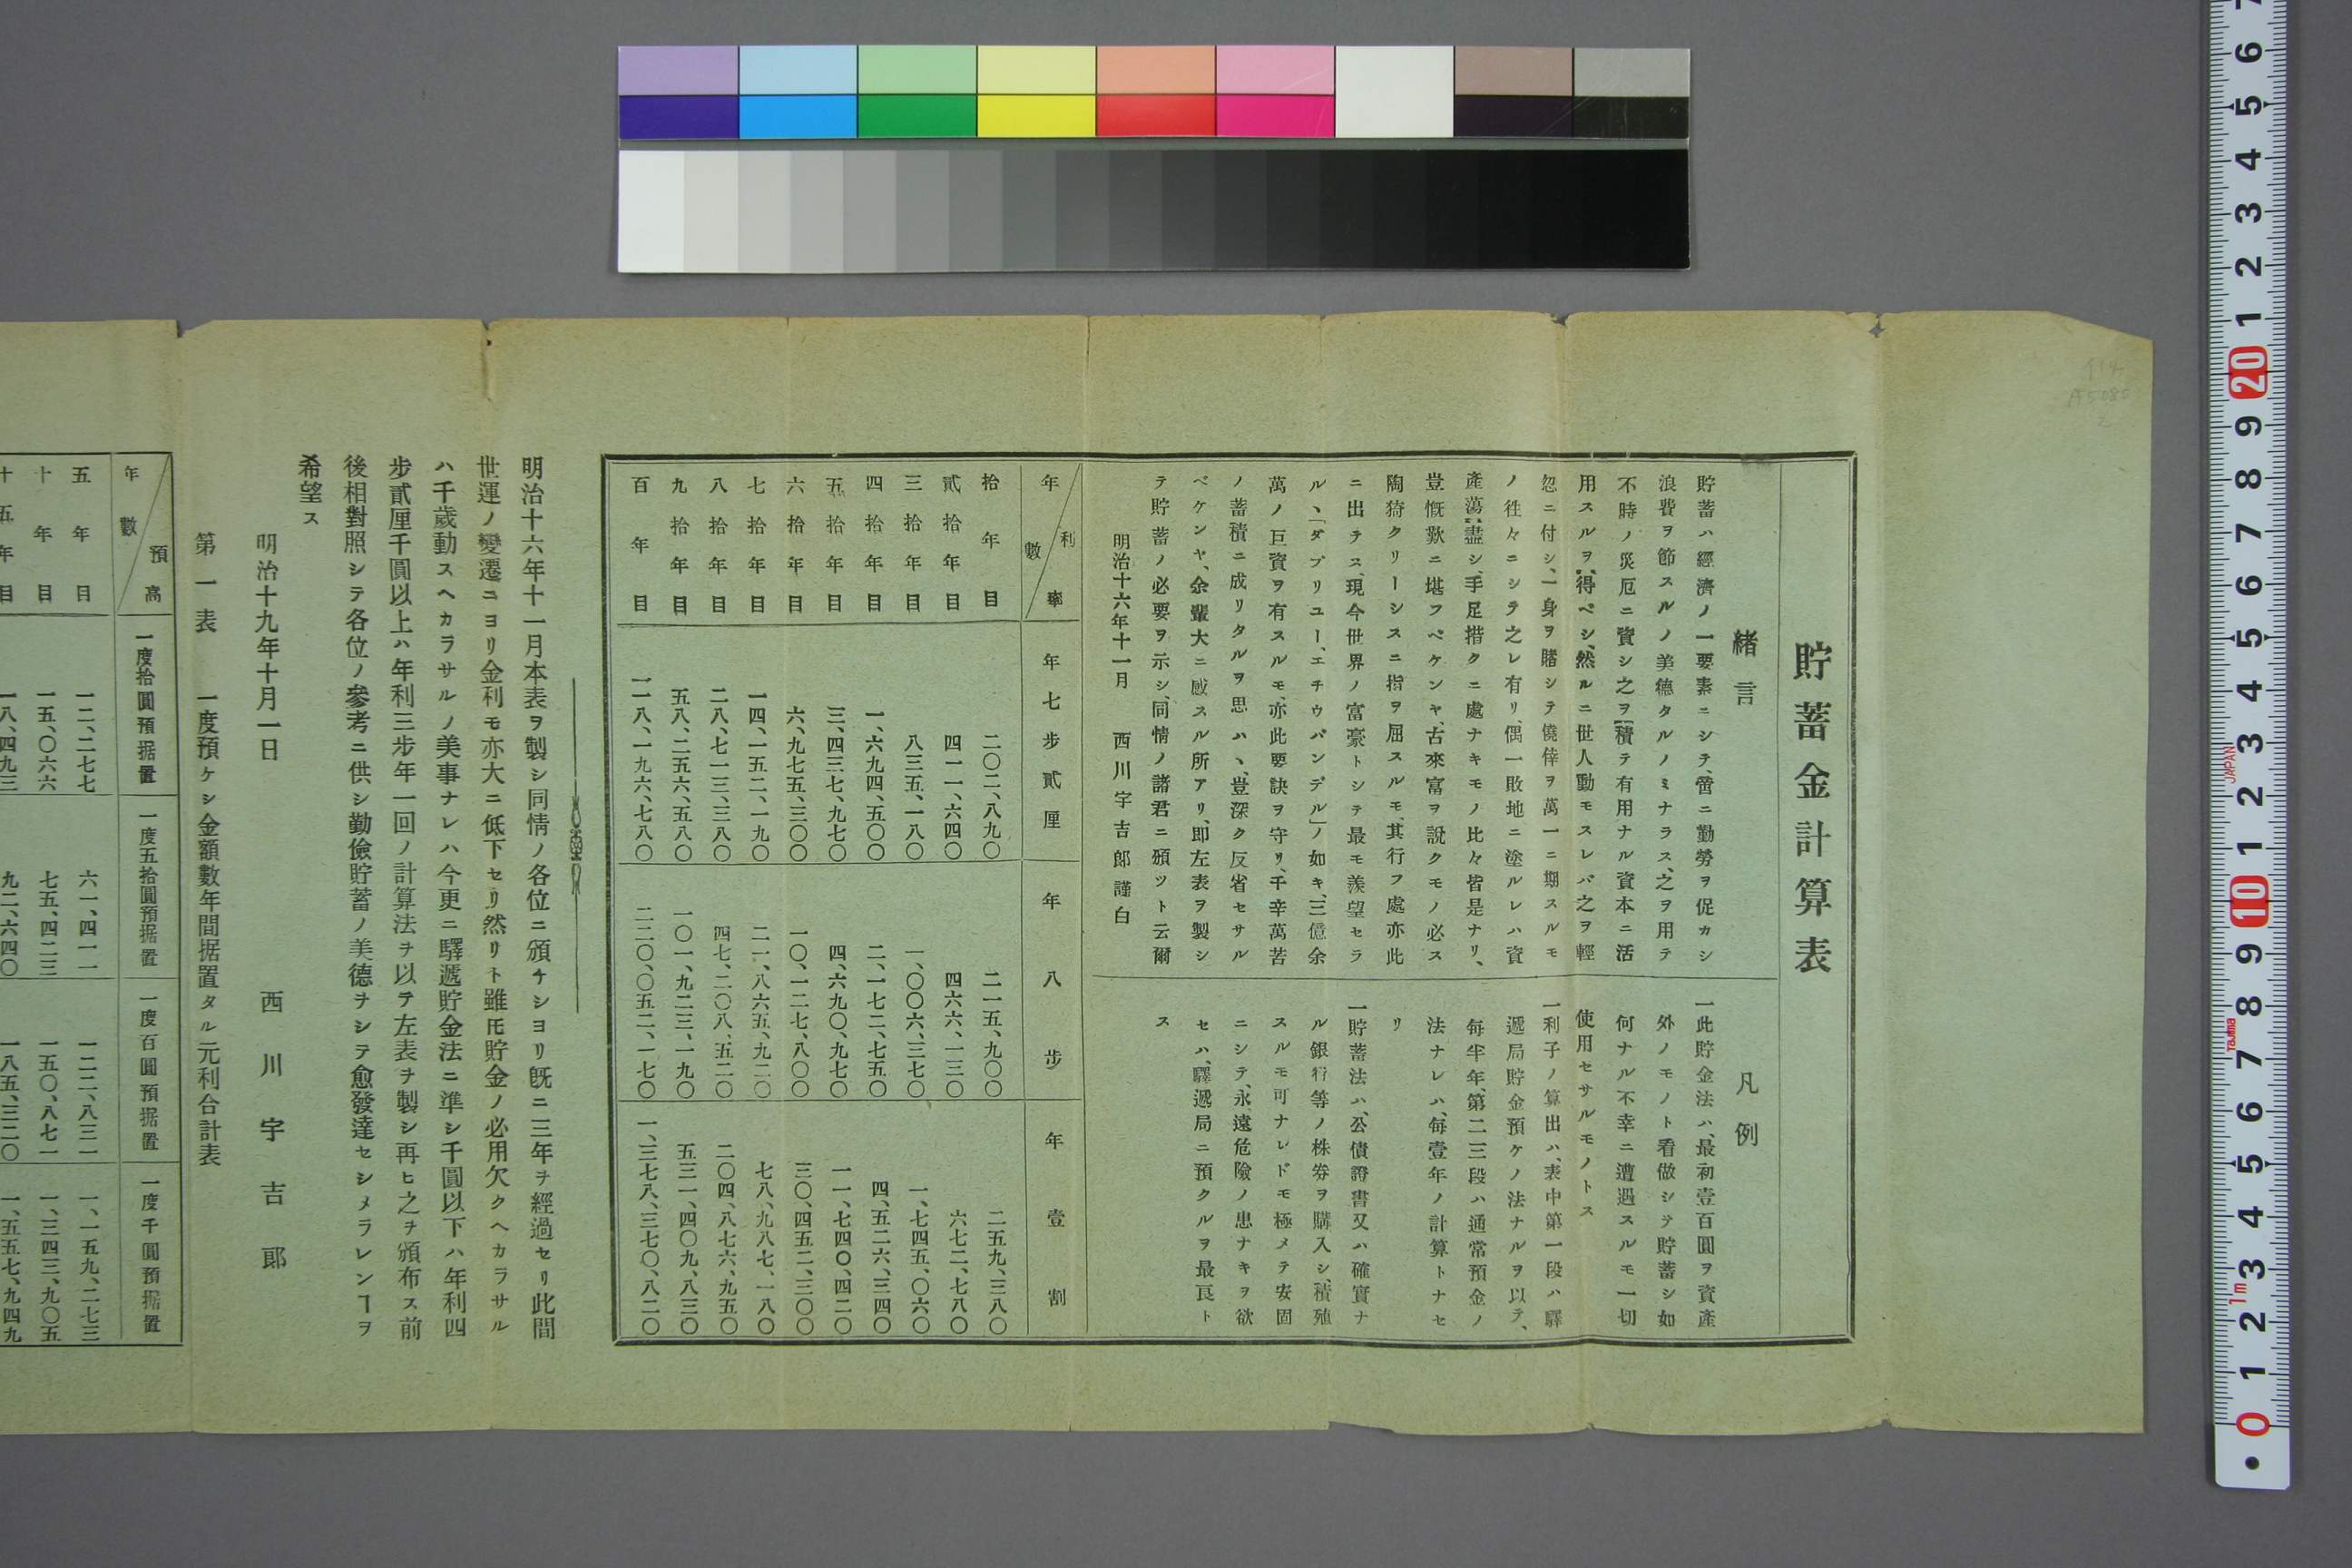 貯蓄金計算表
緒言
貯蓄ハ經濟ノ一要素ニシテ、啻ニ勤勞ヲ促カシ
浪費ヲ節スルノ美德タルノミナラス、之ヲ用テ
不時ノ災厄ニ資シ之ヲ積テ有用ナル資本ニ活
用スルヲ得ベシ、然ルニ世人動モスレバ之ヲ輕
忽ニ付シ、一身ヲ賭シテ僥倖ヲ萬一ニ期スルモ
ノ徃々ニシテ之レ有リ、偶一敗地ニ塗ルレハ資
產蕩盡シ、手足措クニ處ナキモノ比々皆是ナリ、
豈慨歎ニ堪フベケンヤ、古來富ヲ説クモノ必ス
陶猗クリーシスニ指ヲ屈スルモ、其行フ處亦此
ニ出テス、現今世界ノ富豪トシテ最モ羨望セラ
ルヽ「ダブリユー、エチウバンデル」ノ如キ、三億余
萬ノ巨資ヲ有スルモ、亦此要訣ヲ守リ、千辛萬苦
ノ蓄積ニ成リタルヲ思ハヽ、豈深ク反省セサル
ベケンヤ、余輩大ニ感スル所アリ、即左表ヲ製シ
テ貯蓄ノ必要ヲ示シ、同情ノ諸君ニ頒ツト云爾
明治十六年十一月 西川宇吉郎謹白
凡例
一此貯金法ハ、最初壹百圓ヲ資產
外ノモノト看做シテ貯蓄シ如
何ナル不幸ニ遭遇スルモ一切
使用セサルモノトス
一利子ノ算出ハ、表中第一段ハ驛
遞局貯金預ケノ法ナルヲ以テ、
每半年、第二三段ハ通常預金ノ
法ナレハ、每壹年ノ計算トナセ
リ
一貯蓄法ハ、公債證書又ハ確實ナ
ル銀行等ノ株券ヲ購入シ、積殖
スルモ可ナレドモ極メテ安固
ニシテ、永遠危險ノ患ナキヲ欲
セハ、驛遞局ニ預クルヲ最良ト
ス
利率 年數 年七步貳厘 年八步 年壹割
拾年目 二〇二、八九〇 二一五、九〇〇 二五九、三八〇
貳拾年目 四一一、六四〇 四六六、一三〇 六七二、七八〇
三拾年目 八三五、一八〇 一、〇〇六、三七〇 一、七四五、〇六〇
四拾年目 一、六九四、五〇〇 二、一七二、七五〇 四、五二六、三四〇
五拾年目 三、四三七、九七〇 四、六九〇、九七〇 一一、七四〇、四二〇
六拾年目 六、九七五、三〇〇 一〇、一二七、八〇〇 三〇、四五二、三〇〇
七拾年目 一四、一五二、一九〇 二一、八六五、九二〇 七八、九八七、一八〇
八拾年目 二八、七一三、三八〇 四七、二〇八、五二〇 二〇四、八七六、九五〇
九拾年目 五八、二五六、五八〇 一〇一、九二三、一九〇 五三一、四〇九、八三〇
百年目 一一八、一九六、七八〇 二二〇、〇五二、一七〇 一、三七八、三七〇、八二〇
明治十六年十一月本表ヲ製シ同情ノ各位ニ頒チシヨリ旣ニ三年ヲ經過セリ此間
世運ノ變遷ニヨリ金利モ亦大ニ低下セリ然リト雖𪜈貯金ノ必用欠クヘカラサル
ハ千歲動スヘカラサルノ美事ナレハ今更ニ驛遞貯金法ニ準シ千圓以下ハ年利四
步貳厘千圓以上ハ年利三步年一回ノ計算法ヲ以テ左表ヲ製シ再ヒ之ヲ頒布ス前
後相對照シテ各位ノ參考ニ供シ勤儉貯蓄ノ美德ヲシテ愈發達セシメラレンヿヲ
希望ス
明治十九年十月一日 西川宇吉郎
第一表 一度預ケシ金額數年間据置タル元利合計表
預高 年數 一度拾圓預据置 一度五拾圓預据置 一度百圓預据置 一度千圓預据置
五年目 一二、二七七 六一、四一一 一二二、八三一 一、一五九、二七三
十年目 一五、〇六六 七五、四二三 一五〇、八七一 一、三四三、九〇五
十五年目 一八、四九三 九二、六四〇 一八五、三二〇 一、五五七、九四九
7
6
5
4
3
2
1
20
9
8
7
6
5
4
3
2
1
10
9
8
7
6
5
4
3
2
1
0
JAPAN
Tajima
1m